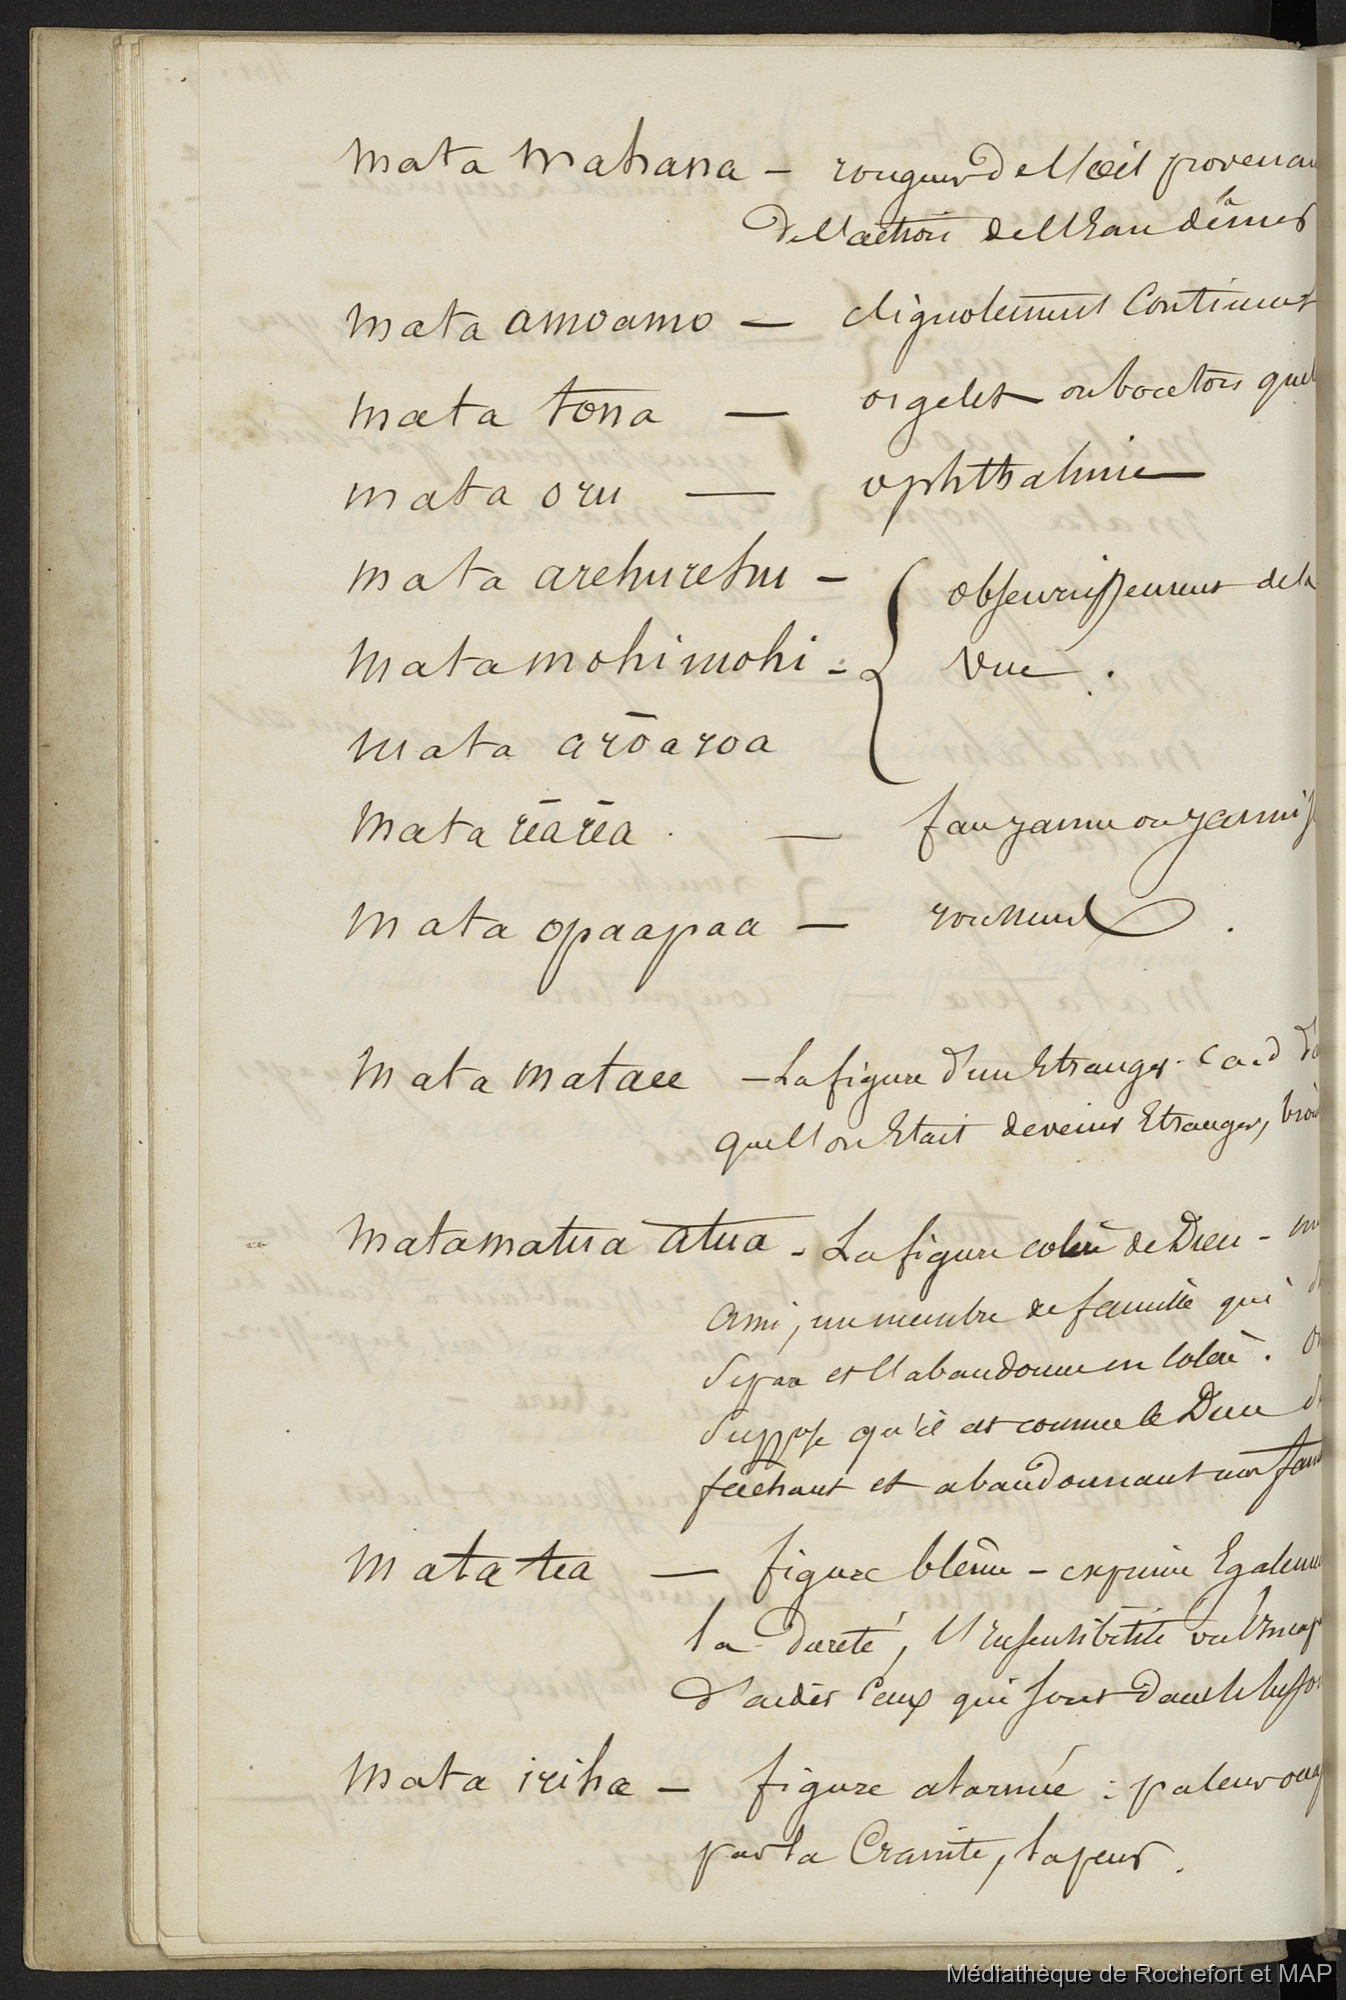 mata mahana — rougeur de l'œil provenan
de l'action de l'Eau de mer
mata amoamo — clignotement Continuel
mata tona — orgelet ou bouton quel
mata oru — ophthalmie
mata arehurehu —
{ obscurcissement de la
mata mohimohi - vue.
mata arōaroa
mata rēarēa — jaune ou jauni
mata opaapaa —
mata mataee — La figure d'un Etranger. C.a.d d'
que l'on Etait devenu Etranger,
matamatua atua - La figure colère de Dieu - un
Ami, un membre de famille qui
et l'abandonne en Colère. On
Suppose qu'il est comme le Dieu
fâchant et abandonnant une fam
mata tea — figure blême - exprime Egaleme
la dureté, l'insensibilité ou l'Incap
d'aider Ceux qui sont dans le
mata iriha — figure alarmée : paleur
par la Crainte, la peur.
Médiathèque de Rochefort et MAP